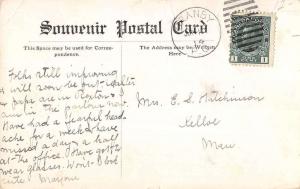 Souvenir Postal Card
This Space may be used for Corres-
pondence.
This Space may be for Address
Here.
CANADA
1
Folks still improving
will soon be out
papa are in
in the parlor now
Have had a fearful head
ache for a week & have
missed a day & a half
at the office. Have got to
wear glasses. Won't I look
cute! Marjorie
Mrs. E. S. Hutchinson
Kelloe
Man